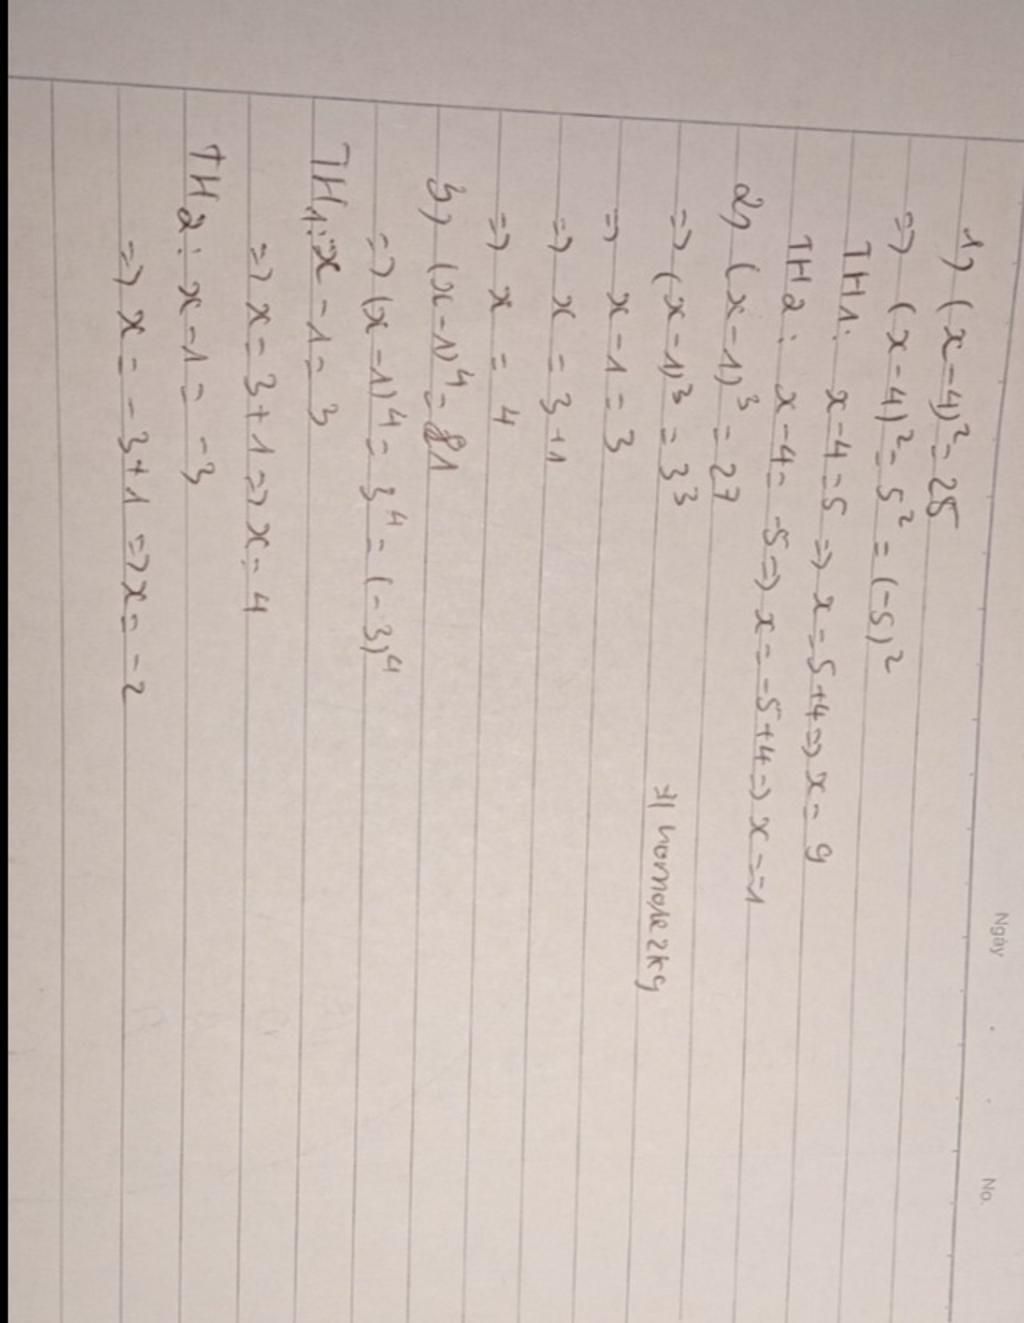 Ngày . . No.
1, (x-4)² = 25
=> (x-4)² = 5² = (-5)²
TH1: x-4=5 => x=5+4=> x= 9
TH2: x-4= -5=> x=-5+4=> x=-1
2, (x-1)³ = 27
=> (x-1)³ = 3³
=> x-1=3
=> x=3+1
=> x = 4
3, (x-1)⁴ = 81
=> (x-1)⁴ = 3⁴ = (-3)⁴
TH1: x-1= 3
=> x=3+1=> x=4
TH2: x-1= -3
=> x= -3+1 => x= -2